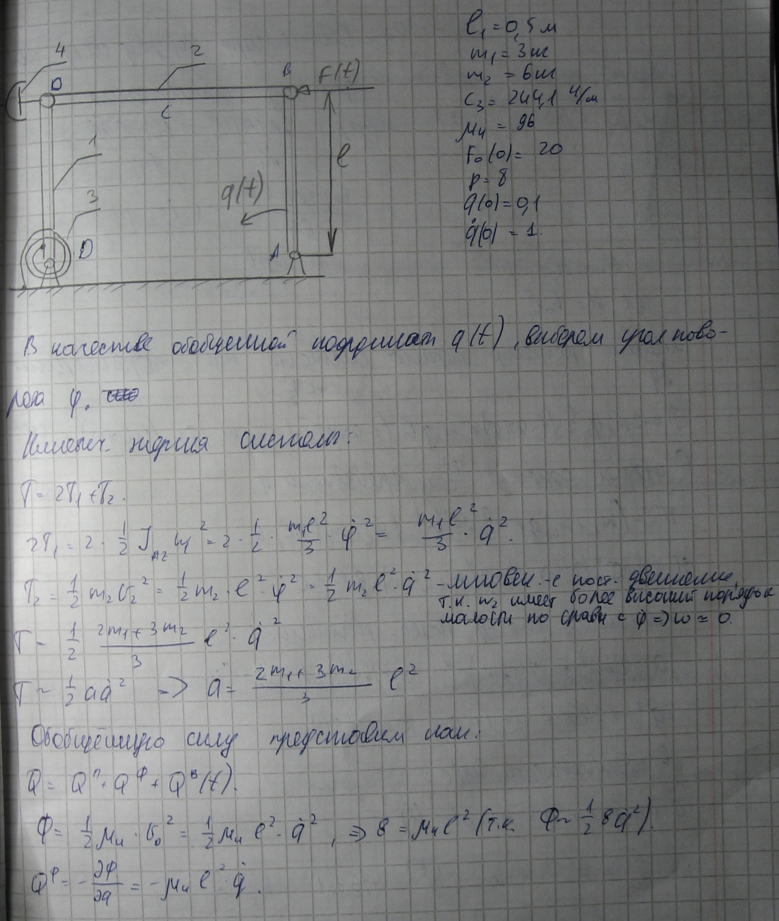 l₁ = 0,5 м
m₁ = 3 кг
m₂ = 6 кг
c₃ = 244,1 Н/м
μ₄ = 96
F₀(0) = 20
p = 8
q(0) = 0,1
q̇(0) = 1
4
O
2
B
F(t)
C
1
l
q(t)
3
D
A
В качестве обобщенной координат q(t), выберем угол пово-
рота φ.
Кинетич. энергия системы:
T = 2T₁ + T₂.
2T₁ = 2 · 1/2 J ω² = 2 · 1/2 · m₁l²/3 · φ̇² = m₁l²/3 · q̇².
T₂ = 1/2 m₂ v₂² = 1/2 m₂ · l² · φ̇² = 1/2 m₂ l² · q̇² – мгновен. пост. движение,
т.к. имеет более высокий порядок
малости по сравн с φ̇ => ω ≈ 0.
T = 1/2 (2m₁ + 3m₂)/3 l² · q̇²
T = 1/2 a q̇² => a = (2m₁ + 3m₂)/3 l²
Обобщённую силу представим как:
Q = Qᴨ + Qᶲ + Qᴮ(t).
Ф = 1/2 μ₄ · v₀² = 1/2 μ₄ l² · q̇², => в = μ₄ l² (т.к. Ф = 1/2 в q̇²).
Qᶲ = -∂Ф/∂q̇ = -μ₄ l² q̇.